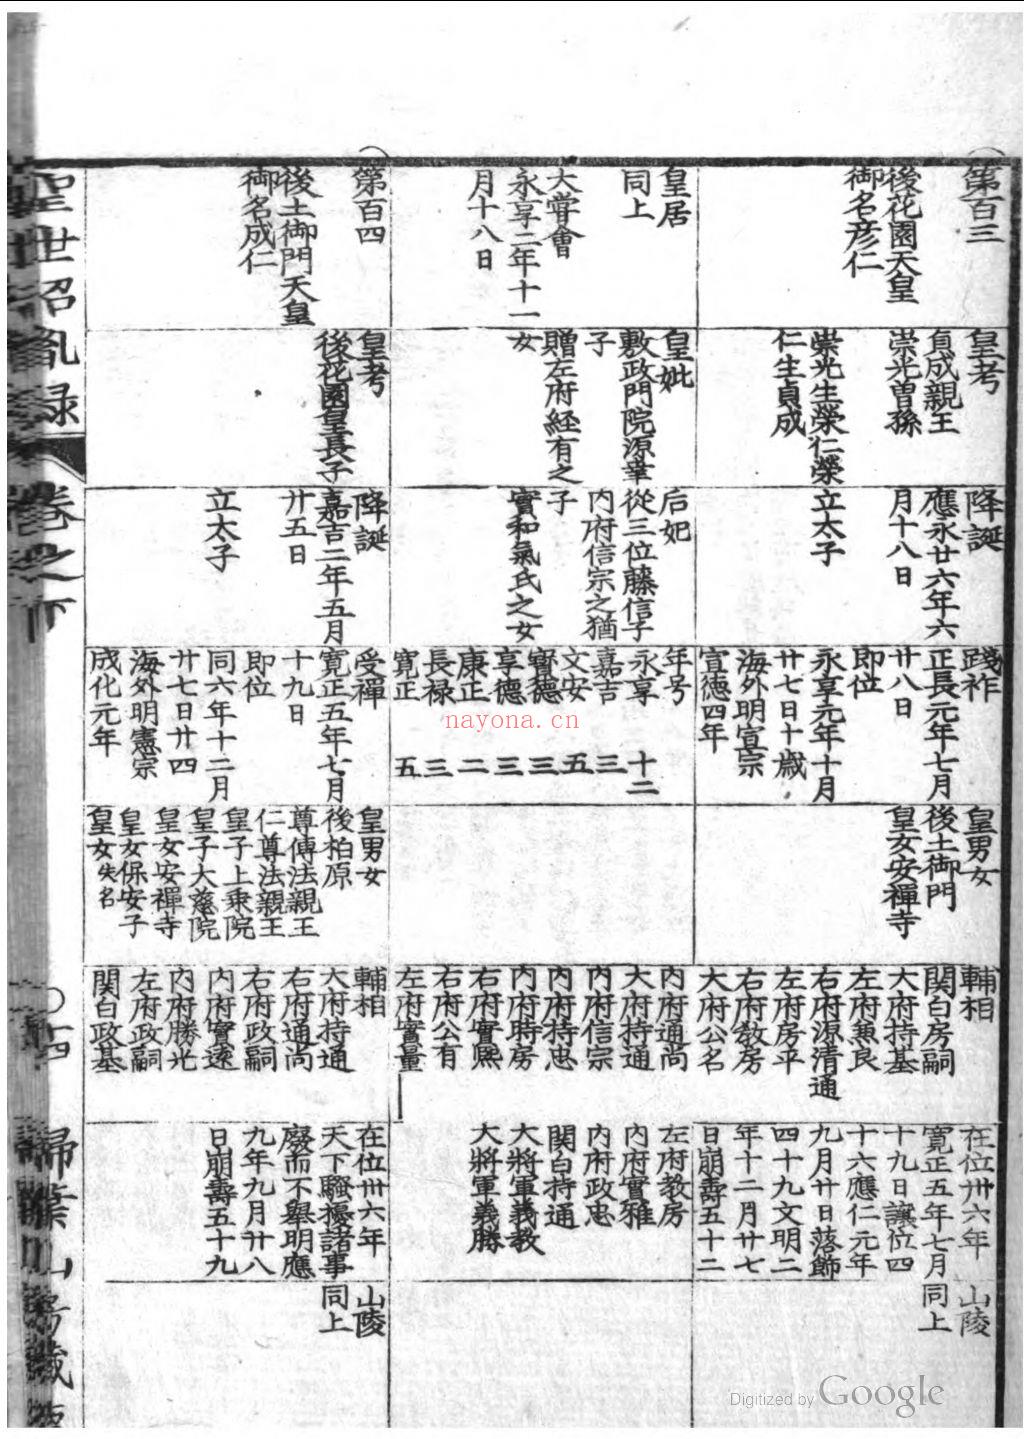 第百三
後花園天皇
御名彦仁
皇考
貞成親王
崇光曽孫
崇光生榮仁榮
仁生貞成
降誕
應永廿六年六
月十八日
立太子
踐祚
正長元年七月
廿八日
即位
永享元年十月
廿七日十歳
海外明宣宗
宣德四年
皇男女
後土御門
皇女安禪寺
輔相
関白房嗣
大府持基
左府兼良
右府源清通
左府房平
右府教房
大府公名
在位卅六年
寛正五年七月
十九日讓位四
十六應仁元年
九月廿日落飾
四十九文明二
年十二月廿七
日崩壽五十二
山陵
同上
皇居
同上
大嘗會
永享二年十一
月十八日
皇妣
敷政門院源幸
子
贈左府経有之
女
后妃
從三位藤信子
内府信宗之猶
子
實和氣氏之女
年号
永享 十二
嘉吉 三
文安 五
寳德 三
享德 三
康正 二
長禄 三
寛正 五
内府通尚
大府持通
内府信宗
内府持忠
内府時房
右府實熙
右府公有
左府實量
左府教房
内府實雅
内府政忠
関白持通
大將軍義教
大將軍義勝
第百四
後土御門天皇
御名成仁
皇考
後花園皇長子
降誕
嘉吉二年五月
廿五日
立太子
受禪
寛正五年七月
十九日
即位
同六年十二月
廿七日廿四
海外明憲宗
成化元年
皇男女
後柏原
尊傳法親王
仁尊法親王
皇子上乗院
皇子大慈院
皇女安禪寺
皇女保安子
皇女失名
輔相
大府持通
右府通尚
右府政嗣
内府實遠
内府勝光
左府政嗣
関白政基
在位卅六年
天下騷擾諸事
廢而不舉明應
九年九月廿八
日崩壽五十九
山陵
同上
聖世紹胤録
卷之下
nayona.cn
Digitized by Google